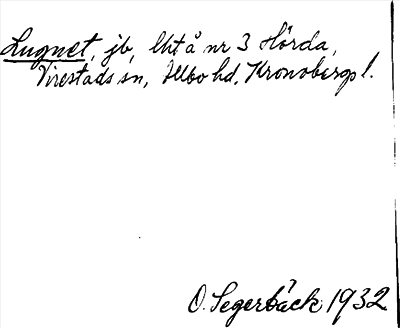 Lugnet, jb, lht å nr 3 Hörda,
Virestads sn, Allbo hd, Kronobergs l.
O. Segerbäck 1932